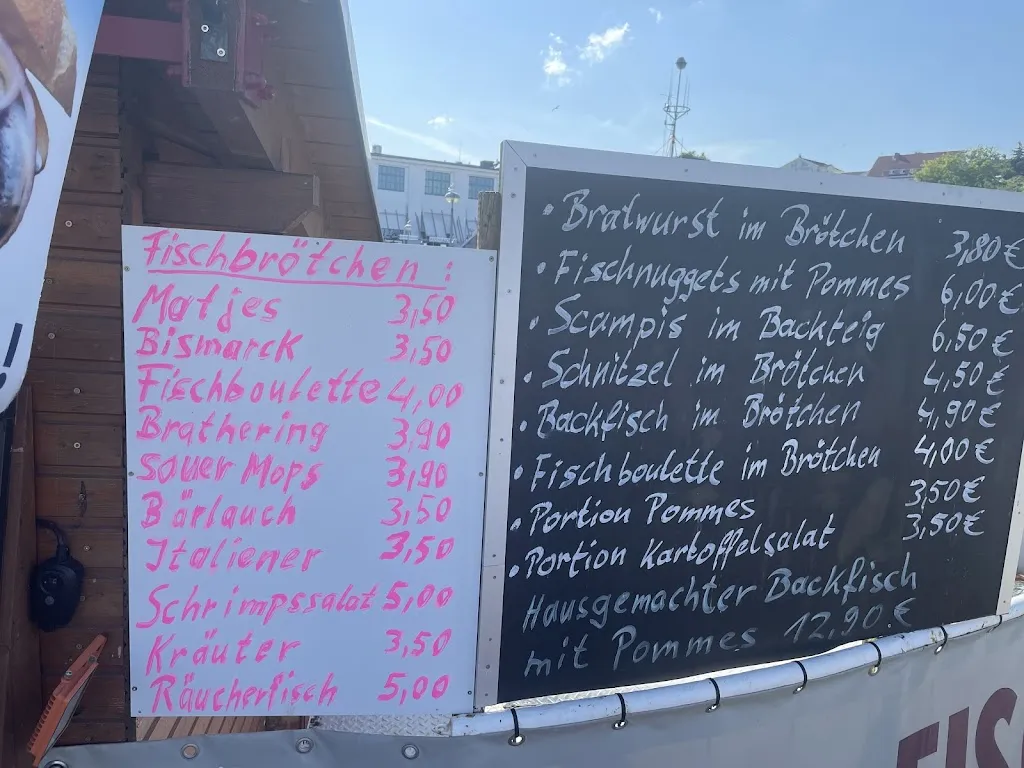 !
Fischbrötchen:
Matjes 3,50
Bismarck 3,50
Fischboulette 4,00
Brathering 3,90
Sauer Mops 3,90
Bärlauch 3,50
Italiener 3,50
Schrimpssalat 5,00
Kräuter 3,50
Räucherfisch 5,00
• Bratwurst im Brötchen 3,80€
• Fischnuggets mit Pommes 6,00€
• Scampis im Backteig 6,50€
• Schnitzel im Brötchen 4,50€
• Backfisch im Brötchen 4,90€
• Fischboulette im Brötchen 4,00€
• Portion Pommes 3,50€
• Portion Kartoffelsalat 3,50€
Hausgemachter Backfisch
mit Pommes 12,90.€
FIS